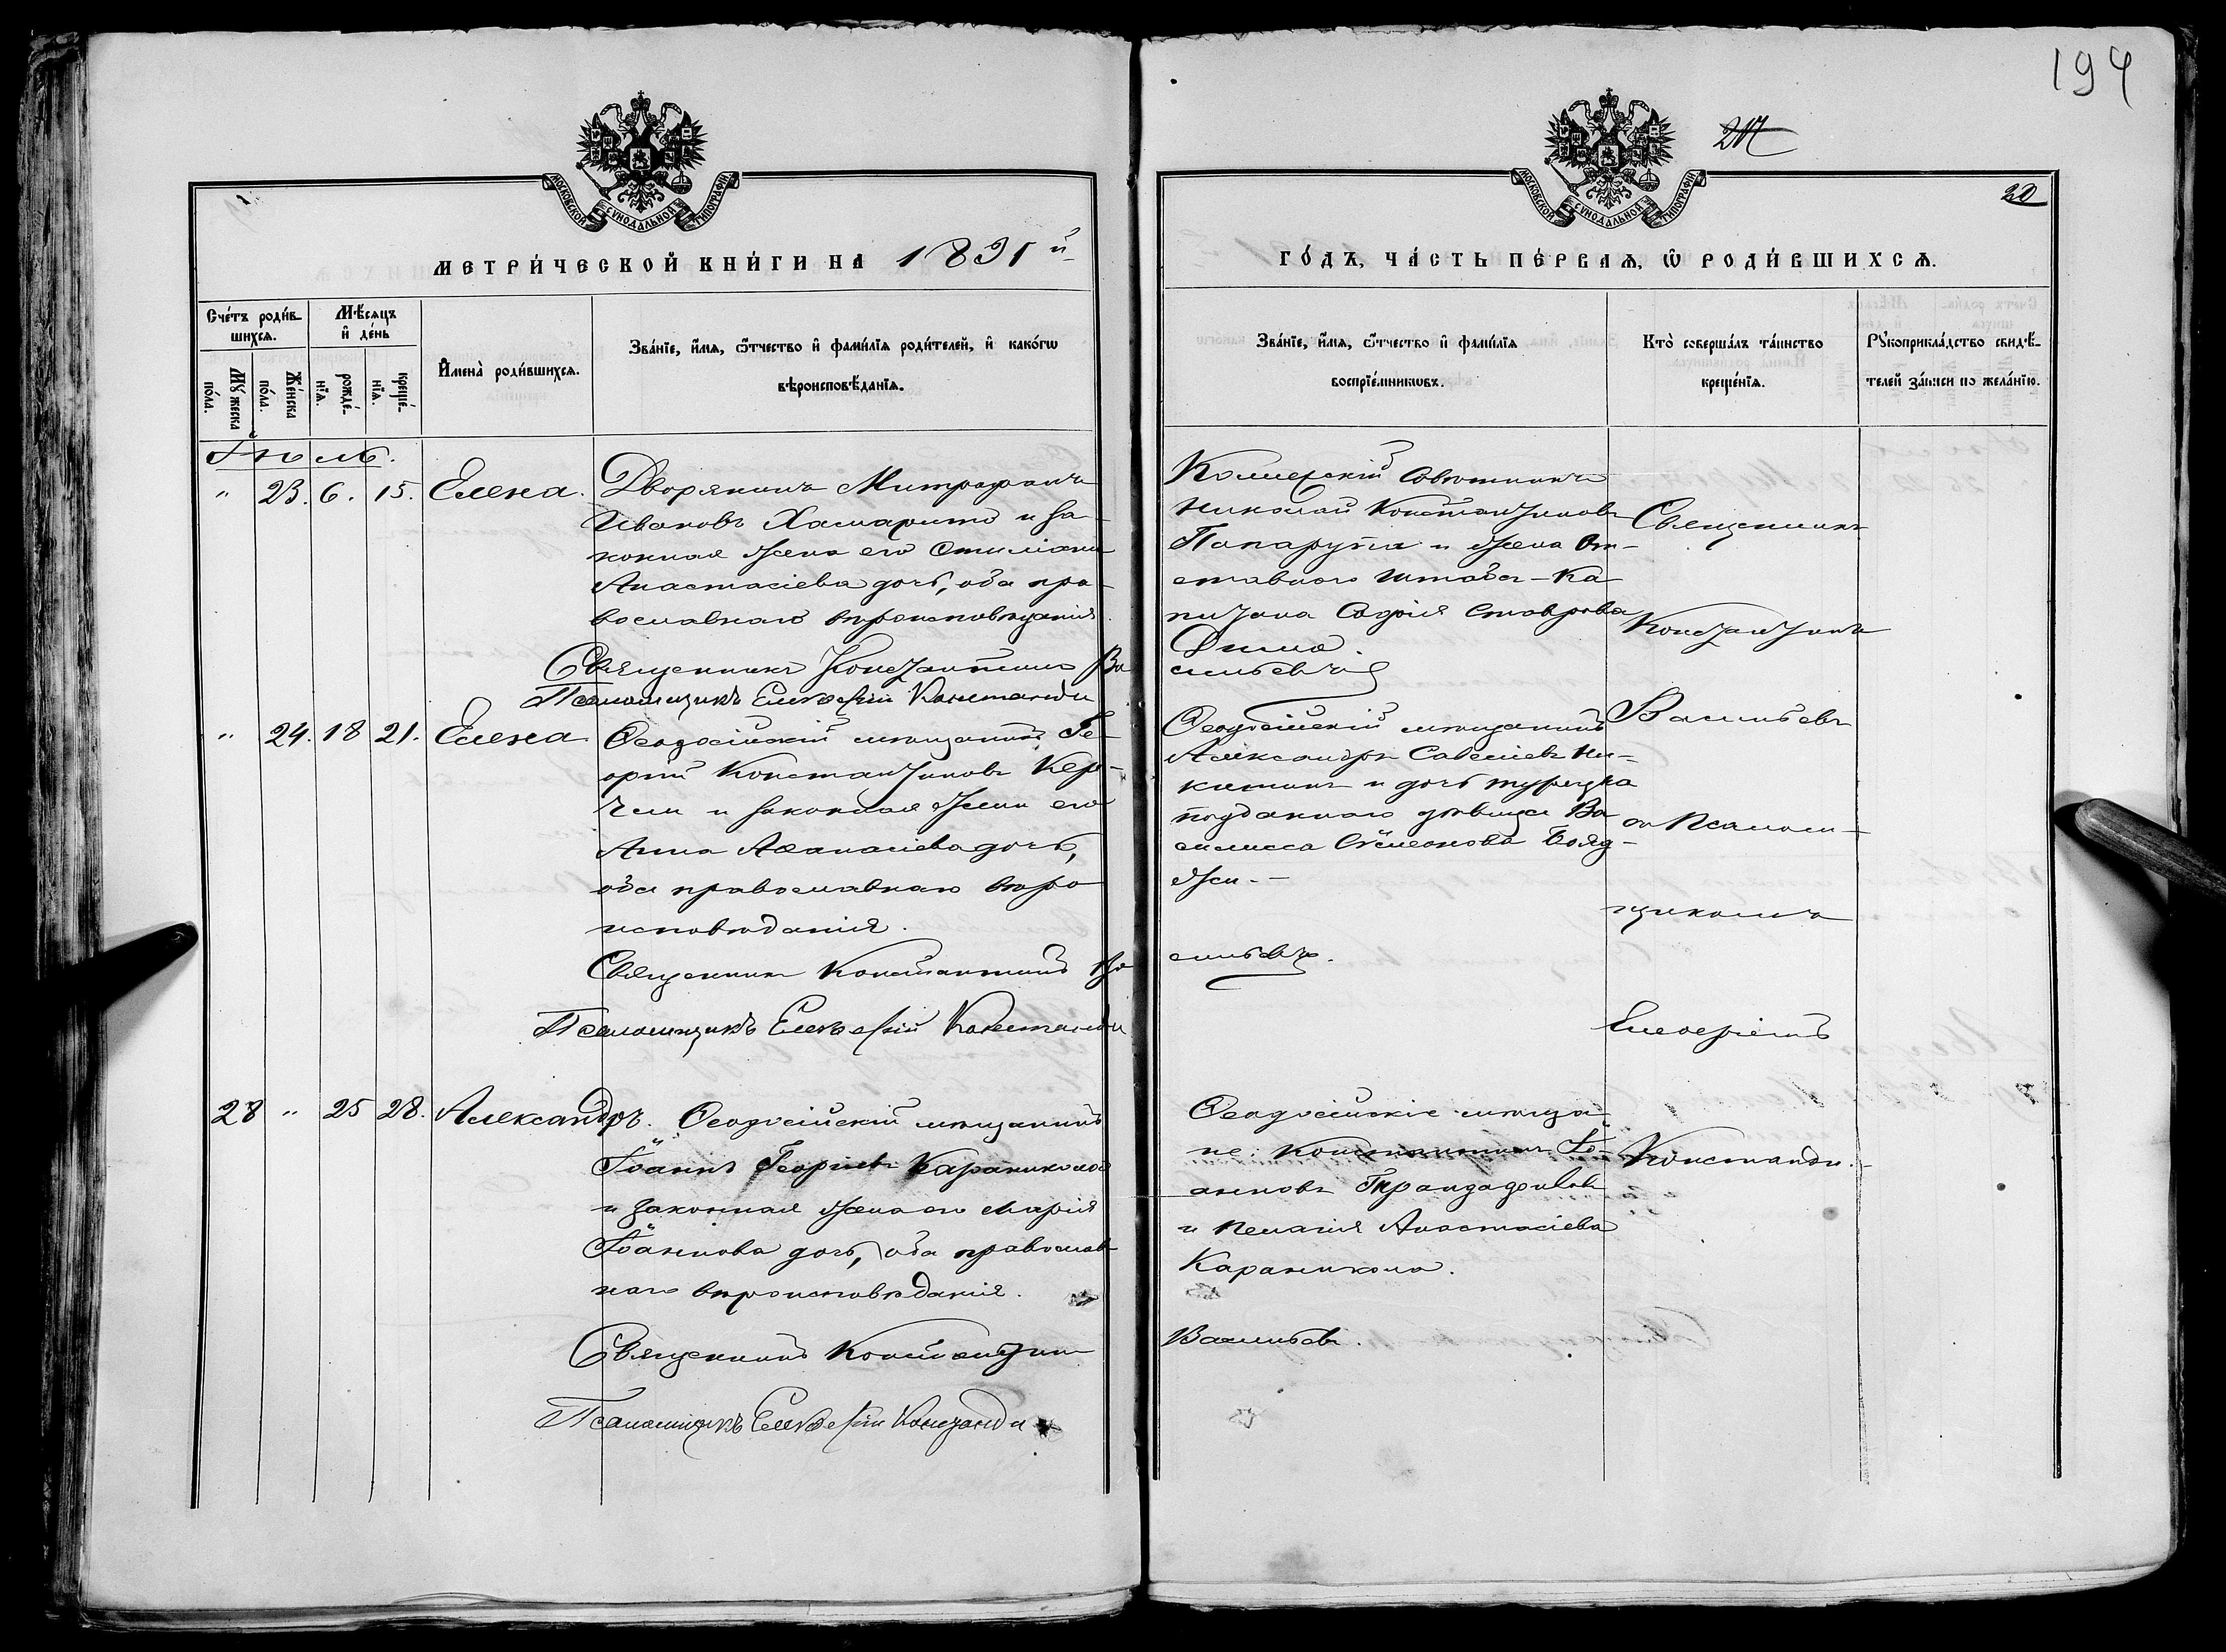 194
217
20
МОСКОВСКОЙ СѴНОДАЛЬНОЙ ТИПОГРАФІИ
МОСКОВСКОЙ СѴНОДАЛЬНОЙ ТИПОГРАФІИ
МЕТРИ́ЧЕСКОЙ КНИ́ГИ НА 1891 й
ГО́ДЪ, ЧА́СТЬ ПЕ́РВАѦ, Ѡ РОДИ́ВШИХСѦ.
Сче́тъ роди́в-
шихсѧ.
Мꙋ́жеска
по́ла.
Же́нска
по́ла.
Мѣ́сѧцъ
и де́нь
рожде́-
нїѧ.
креще́-
нїѧ.
Имена̀ роди́вшихсѧ.
Зва́нїе, и́мѧ, ѻ́тчество и фами́лїѧ роди́телей, и како́гѡ
вѣроисповѣ́данїѧ.
Зва́нїе, и́мѧ, ѻ́тчество и фами́лїѧ
воспрїе́мникѡвъ.
Кто̀ соверша́лъ та́инство
креще́нїѧ.
Рꙋкоприкла́дство свидѣ́-
телей за́писи по жела́нїю.
Іюль.
" 23. 6. 15. Елена.
Дворянинъ Митрофанъ
Ивановъ Хамарито и за-
конная жена его Емиліана
Анастасіева дочь, оба пра-
вославнаго вѣроисповѣданія.
Священникъ Константинъ Ва
Псаломщикъ Елевѳерій Констанди
Коммерскій Совѣтникъ
Николай Константиновъ
Папаруна и жена От-
ставного Штабсъ-Ка
питана Софія Ставрова
Дима.
сильевъ
Священникъ
Константинъ
Васильевъ
съ Псаломъ-
щикомъ
Елеѳеріемъ
Констанди.
" 24. 18 21. Елена
Ѳеодосійскій мѣщанинъ Ге-
оргій Константиновъ Кер-
чели и законная жена его
Анна Аѳанасіева дочь,
оба православнаго вѣро
исповѣданія.
Священникъ Константинъ Ва
Псаломщикъ Елевѳерій Констанди
Ѳеодосійскій мѣщанинъ
Александръ Савеліевъ Ни-
китинъ и дочь турецка
подданнаго дѣвица Ва
силисса Сѵмеонова Бояд-
жи.-
сильевъ.
28 " 25 28. Александръ.
Ѳеодосійскій мѣщанинъ
Іоаннъ Георгіевъ Караникола
и законная жена его Марія
Іоаннова дочь, оба православ-
наго вѣроисповѣданія.
Священникъ Константинъ
Псаломщикъ Елевѳерій Констанди
Ѳеодосійскіе мѣща-
не: Константинъ Іо-
анновъ
и Пелагія Анастасіева
Караникола.
Васильевъ.